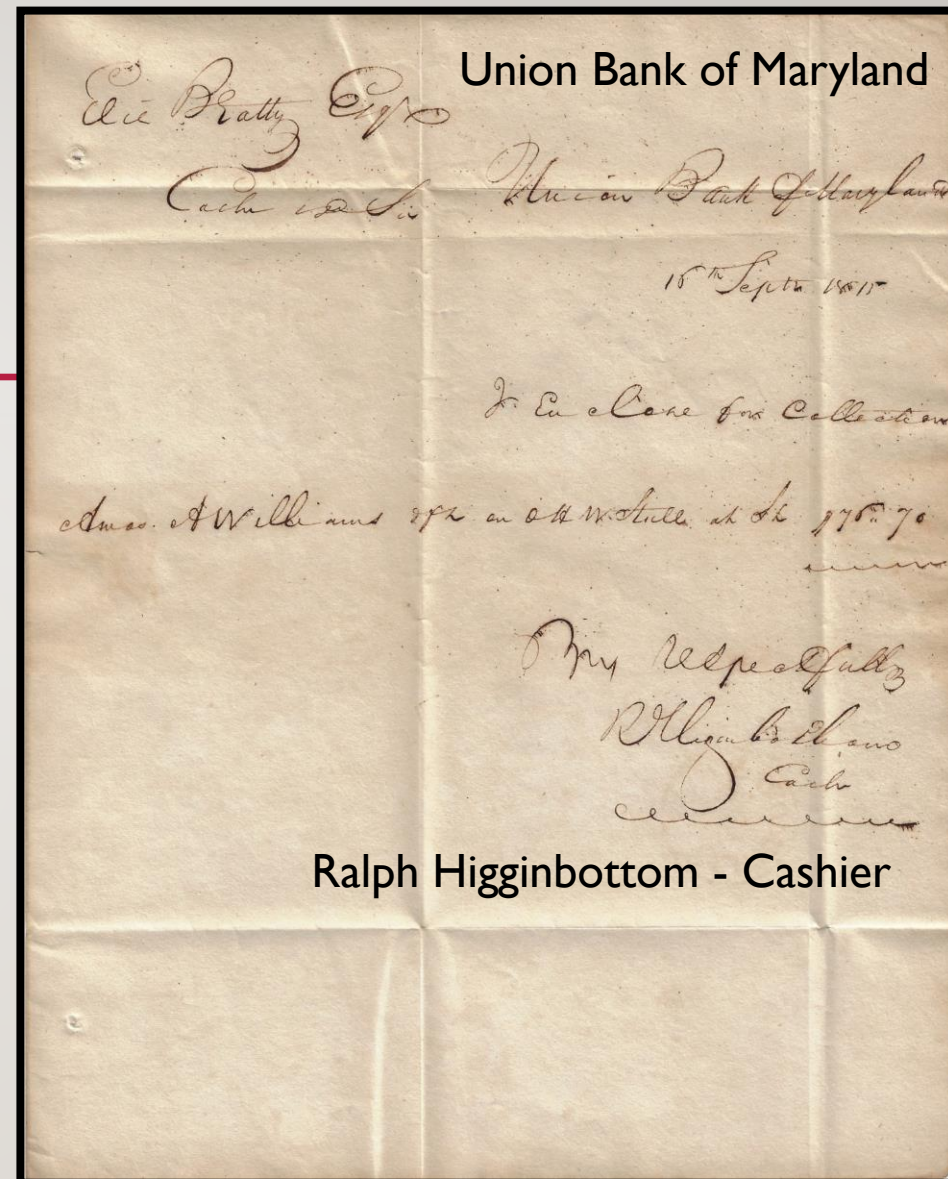 Union Bank of Maryland
Elie Beatty Esqr
Cashr Sir Union Bank of Maryland
15th Septr 1815
I Enclose for Collection
Amos A Williams on O H W Stull at
Very Respectfully
R Higinbothom
Cashr
Ralph Higginbottom - Cashier